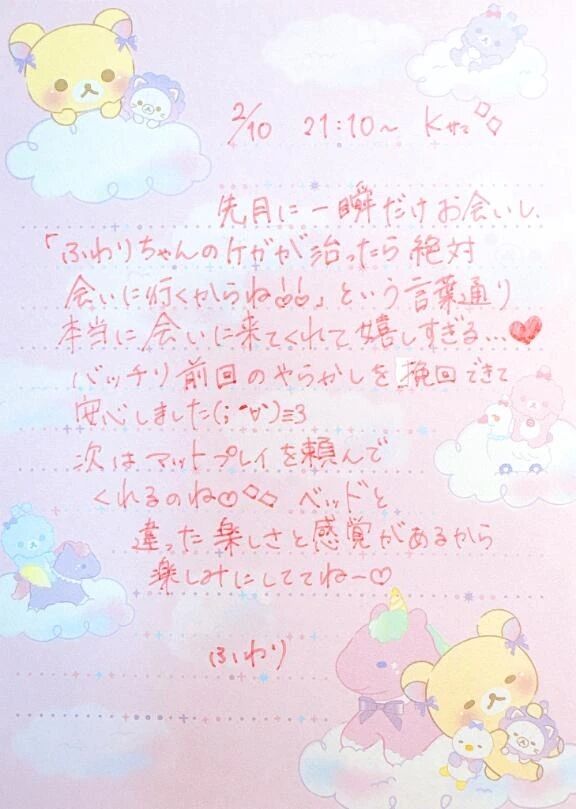 2/10 21:10~ Kサマ
先月に一瞬だけお会いし、
「ふわりちゃんのケガが治ったら絶対
会いに行くからね!!」という言葉通り
本当に会いに来てくれて嬉しすぎる…♥
バッチリ前回のやらかしを挽回できて
安心しました(;´∀`)=3
次はマットプレイを頼んで
くれるのね♡◇◇ ベッドと
違った楽しさと感覚があるから
楽しみにしててねー♡
ふわり